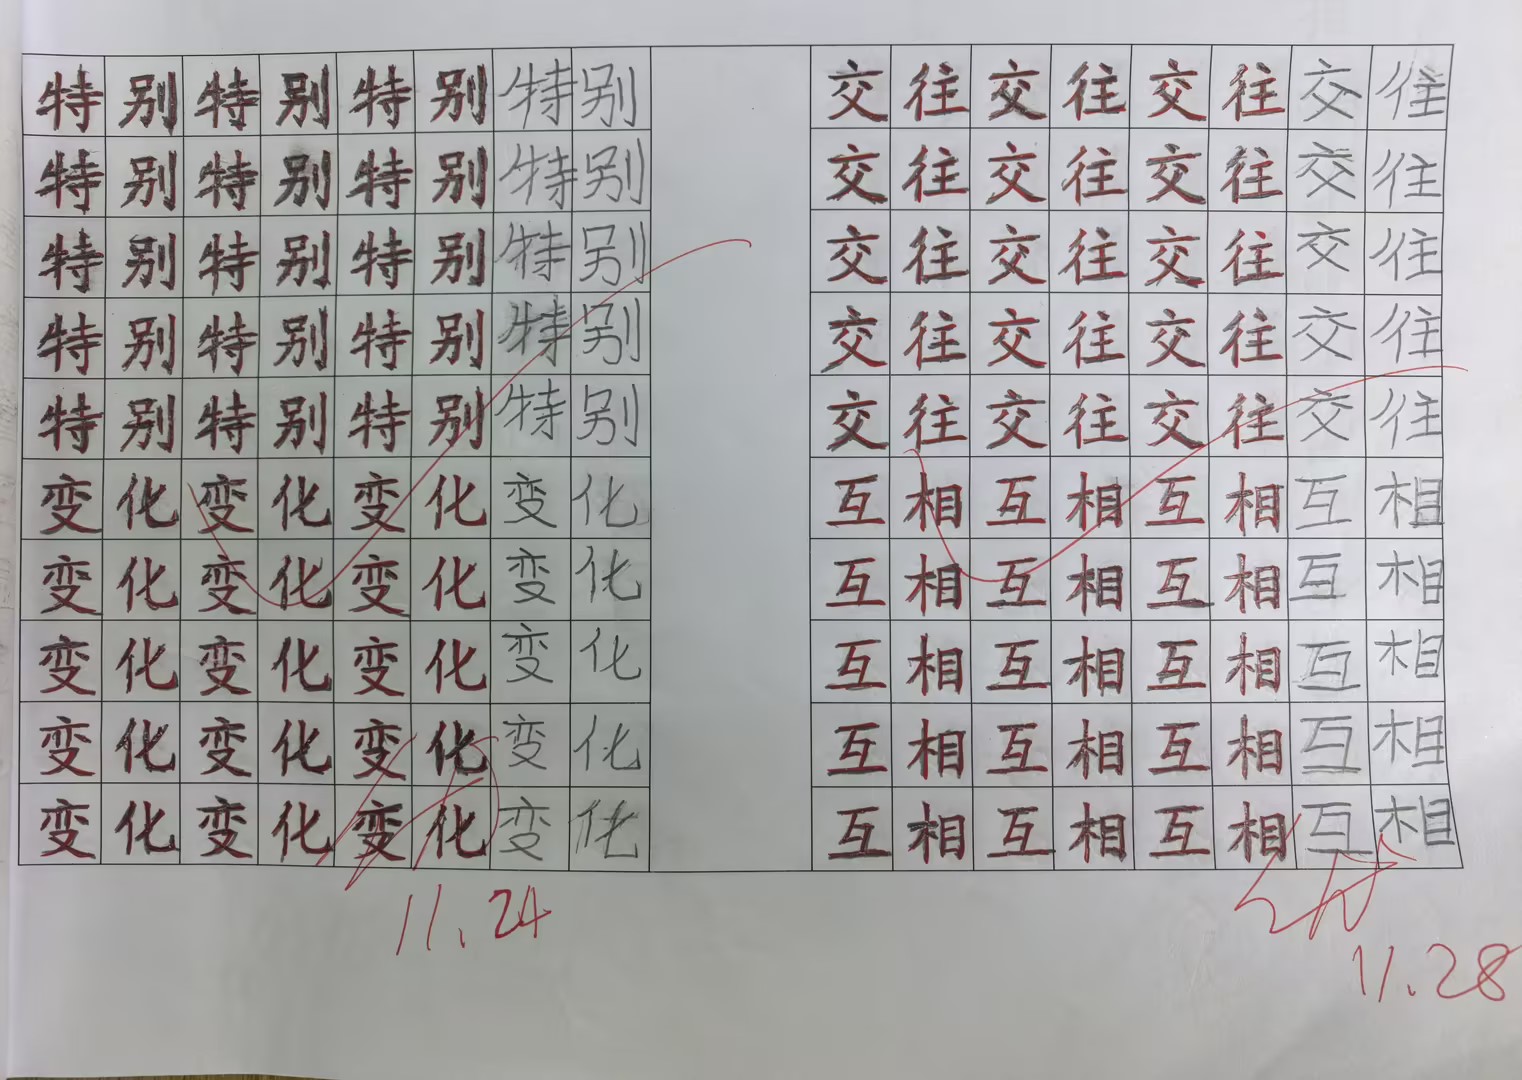 特别特别特别特别
特别特别特别特别
特别特别特别特别
特别特别特别特别
特别特别特别特别
变化变化变化变化
变化变化变化变化
变化变化变化变化
变化变化变化变化
变化变化变化变化
11.24
交往交往交往交往
交往交往交往交往
交往交往交往交往
交往交往交往交往
交往交往交往交往
互相互相互相互相
互相互相互相互相
互相互相互相互相
互相互相互相互相
互相互相互相互相
11.28